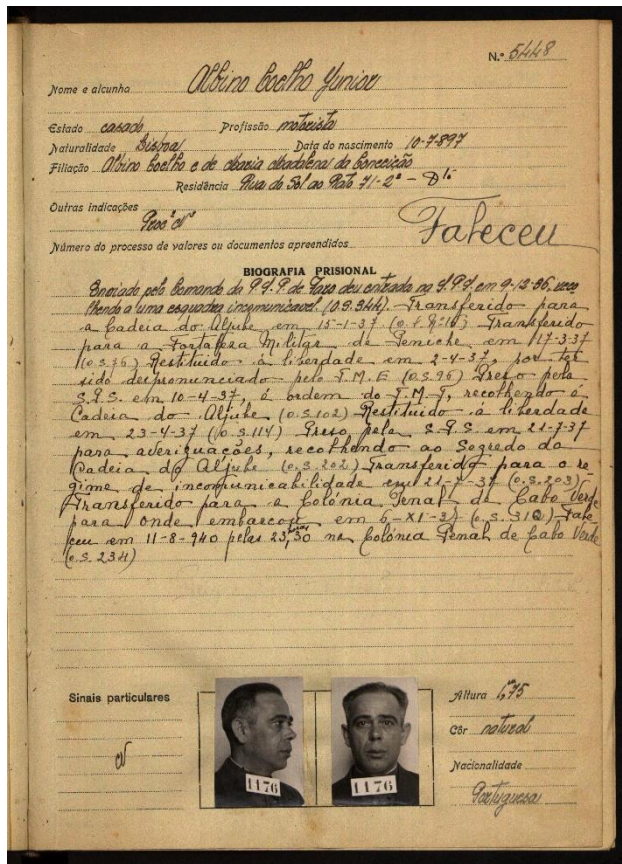 N.º 5448
Nome e alcunha Albino Coelho Junior
Estado casado Profissão motorista
Naturalidade Lisboa Data do nascimento 10-7-897
Filiação Albino Coelho e de Maria Madalena da Conceição
Residência Rua do Sol ao Rato 71-2º - Dtº
Outras indicações
Procº Nº
Faleceu
Número do processo de valores ou documentos apreendidos
BIOGRAFIA PRISIONAL
Enviado pelo Comando da P.S.P. de Faro deu entrada na em 9-12-36, reco
lhendo a uma esquadra incomunicavel. (O.S. 344). Transferido para
a Cadeia do Aljube em 15-1-37 Transferido
para a Fortaleza Militar de Peniche em 17-3-37
(o.s 76) Restituido á liberdade em 2-4-37, por ter
sido despronunciado pelo T.M.E (o.s 96) Preso pela
S.P.S. em 10-4-37, á ordem do T.M.T, recolhendo á
Cadeia do Aljube (o.s 102) Restituido á liberdade
em 23-4-37 (o.s 114) Preso pela S.P.S em 21-7-37
para averiguações, recolhendo ao Segredo da
Cadeia do Aljube (o.s. 202) Transferido para o re
gime de incomunicabilidade em 21-7-37 (o.s. 203)
Transferido para a Colónia Penal de Cabo Verde
para onde embarcou em 6-XI-37 (o.s. 310) Fale
ceu em 11-8-940 pelas 23,30 horas na Colónia Penal de Cabo Verde
(o.s. 234)
Sinais particulares
Altura 1,m75
Côr natural
Nacionalidade
Portuguesa
1176
1176